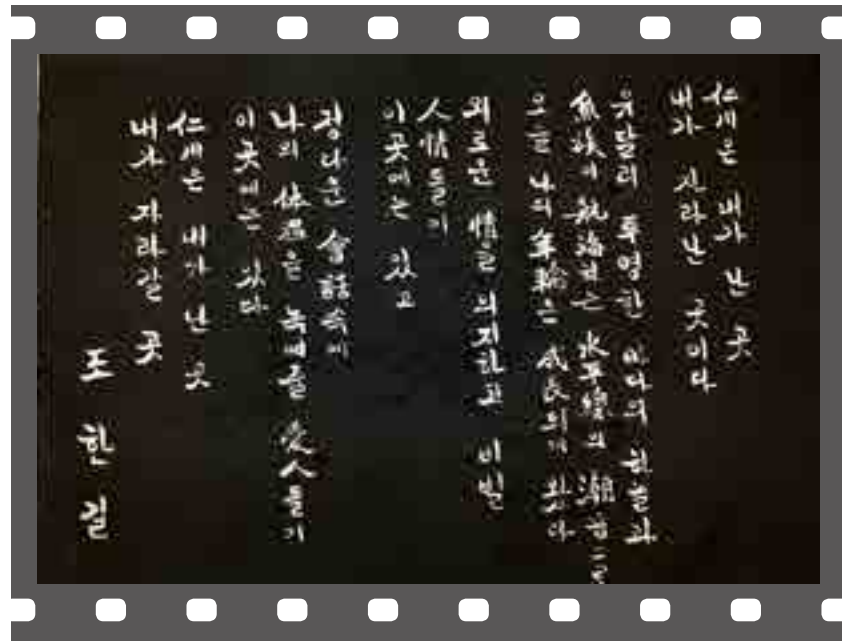 仁川은 내가 난 곳
내가 자라난 곳이다
유달리 투명한 바다의 하늘과
魚族이 水平線의 潮音으로
오늘 나의 年輪은 成長되어 왔다
외로운 情을 의지하고 비빌
人情들이
이곳에는 있고
정다운 會話속에
나의 体温을 녹여줄 愛人들이
이곳에는 있다
仁川은 내가 난 곳
내가 자라갈 곳
조 한 길